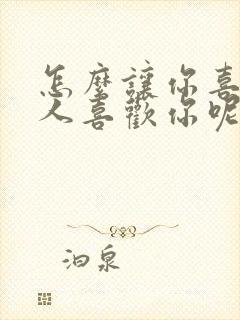 怎麼讓你喜
人喜歡你呢
泊泉